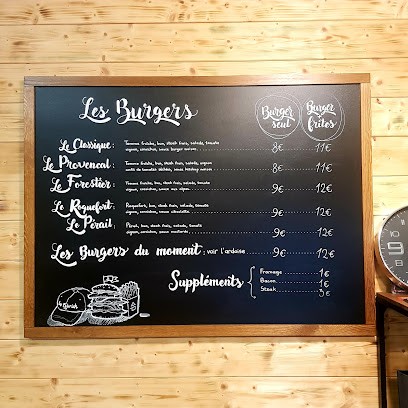 Les Burgers
Burger seul
Burger frites
Le Classique : Tomme fraîche, bun, steak frais, salade, tomate 8€ 11€
oignon, cornichon, sauce burger maison
Le Provencal : Tomme fraîche, bun, steak frais, salade, oignon 8€ 11€
confit de tomates séchées, sauce ketchup maison
Le Forestier : Tomme fraîche, bun, steak frais, salade, tomate 9€ 12€
oignon, cornichon, sauce aux cèpes
Le Roquefort : Roquefort, bun, steak frais, salade, tomate 9€ 12€
oignon, cornichon, sauce
Le Pérail : Pérail, bun, steak frais, salade, tomate 9€ 12€
oignon, cornichon, sauce moutarde
Les Burgers du moment : voir l'ardoise 9€ 12€
Suppléments
Fromage 1€
Bacon 1€
Steak 3€